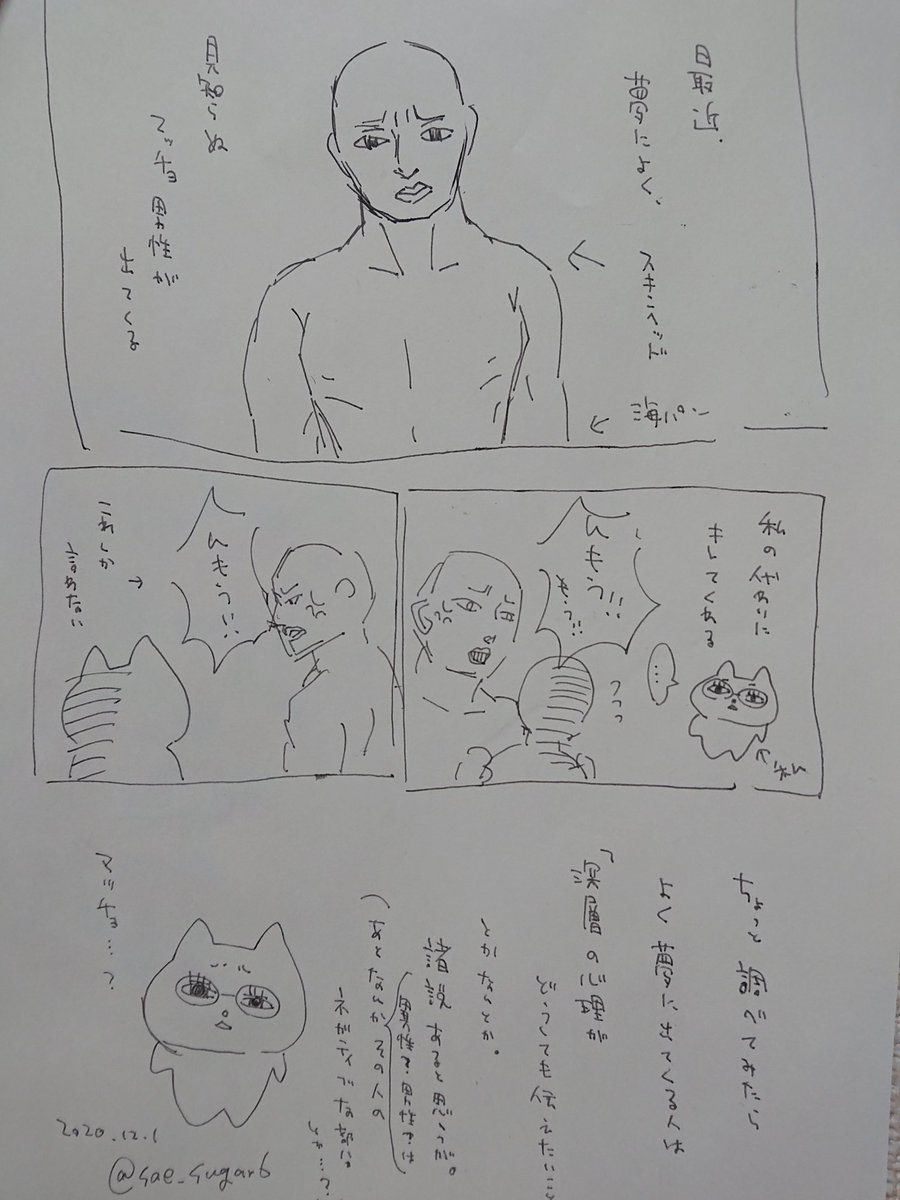 最近、
夢によく、
スキンヘッド
海パン
見知らぬ
マッチョ男性が
出てくる
私の代わりに
キレてくれる
…
私
んもう!!
も〜う!!!
んもう!!
これしか
言わない
ちょっと調べてみたら
よく夢に出てくる人は
「深層の心理が
どうしても伝えたいこと
とかなんとか。
諸説あると思うが。
(あとなんかその人の
ネガティブな部分
とか…?
マッチョ…?
2020.12.1
@sae_sugar6